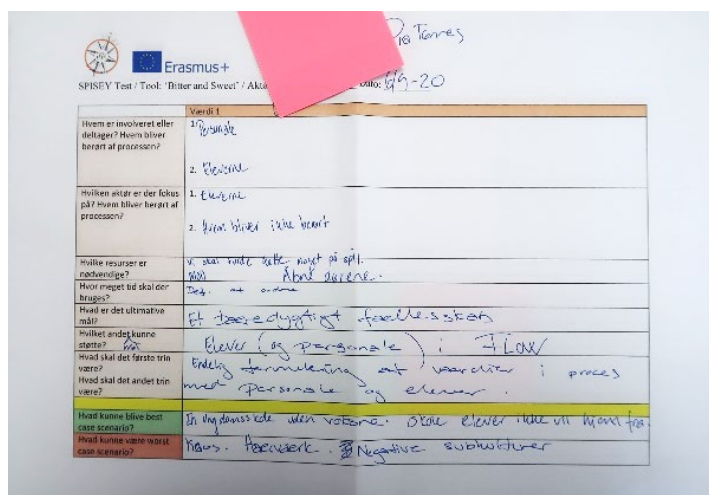 Erasmus+
SPISEY Test / Tool: 'Bitter and Sweet' / Akt
6/9-20
Værdi 1
Hvem er involveret eller
deltager? Hvem bliver
berørt af processen?
1. Personale
2. Eleverne
Hvilken aktør er der fokus
på? Hvem bliver berørt af
processen?
1. Eleverne
2. Hvem bliver ikke berørt
Hvilke resurser er
nødvendige?
Vi skal
noget på spil.
Åbne dørene.
Hvor meget tid skal der
bruges?
Hvad er det ultimative
mål?
Et bæredygtigt fællesskab
Hvilket andet kunne
støtte?
Elever (og personale) i FLOW
Hvad skal det første trin
være?
Hvad skal det andet trin
være?
Endelig formulering af værdier i proces
med personale og elever.
Hvad kunne blive best
case scenario?
En ungdomsskole uden voksne. Skole elever ikke vil hjem fra.
Hvad kunne være worst
case scenario?
Kaos. Hærværk. Negative subkulturer